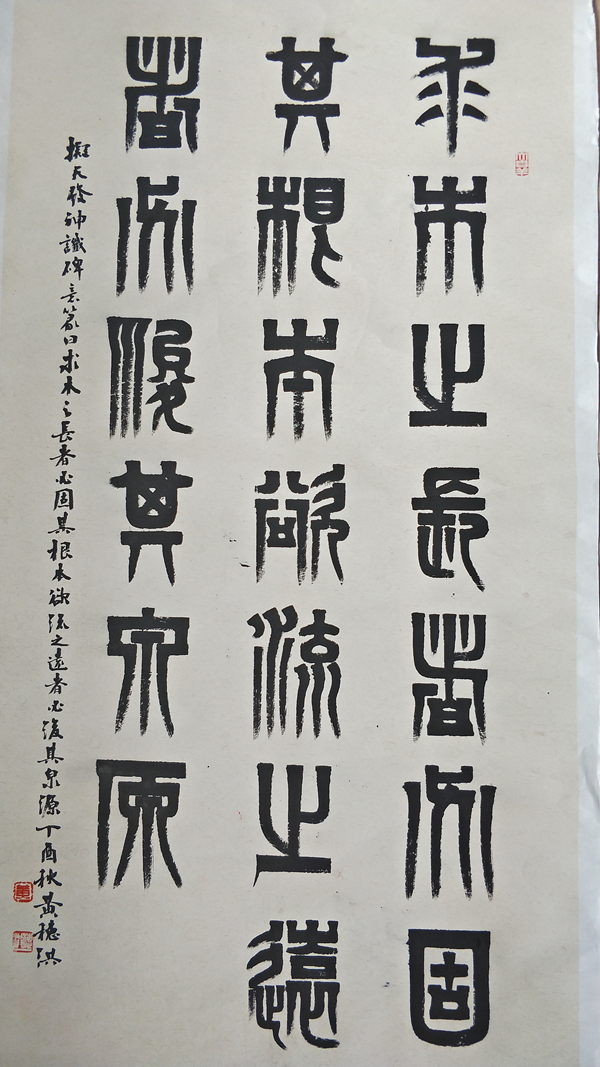 求木之長者必固
其根本欲流之遠
者必浚其泉原
擬天發神讖碑意篆曰求木之長者必固其根本欲流之遠者必浚其泉源丁酉秋黃穗洪